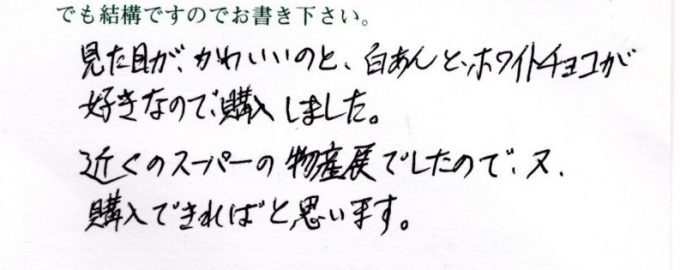 でも結構ですのでお書き下さい。
見た目が、かわいいのと、白あんと、ホワイトチョコが
好きなので、購入しました。
近くのスーパーの物産展でしたので、又、
購入できればと思います。